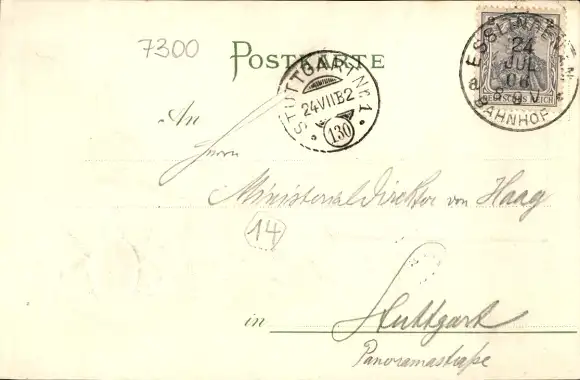 7300
POSTKARTE
ESSLINGEN
24
JUL
06
8-9 V
BAHNHOF
DEUTSCHES REICH
STUTTGART Nr. 1
24 VII B2
130
An
Herrn
Ministerialdirektor von Haag
14
in Stuttgart
Panoramastraße